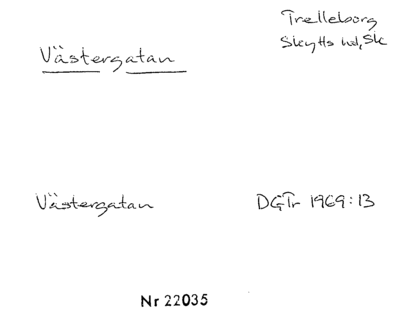 Trelleborg
Skytts hd, Sk
Västergatan
Västergatan DGTr 1969:13
Nr 22035